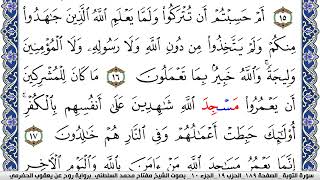 ١٥ أَمْ حَسِبْتُمْ أَن تُتْرَكُوا۟ وَلَمَّا يَعْلَمِ ٱللَّهُ ٱلَّذِينَ جَٰهَدُوا۟
مِنكُمْ وَلَمْ يَتَّخِذُوا۟ مِن دُونِ ٱللَّهِ وَلَا رَسُولِهِۦ وَلَا ٱلْمُؤْمِنِينَ
وَلِيجَةًۚ وَٱللَّهُ خَبِيرٌۢ بِمَا تَعْمَلُونَ ١٦ مَا كَانَ لِلْمُشْرِكِينَ
أَن يَعْمُرُوا۟ مَسْجِدَ ٱللَّهِ شَٰهِدِينَ عَلَىٰٓ أَنفُسِهِم بِٱلْكُفْرِۚ
أُو۟لَٰٓئِكَ حَبِطَتْ أَعْمَٰلُهُمْ وَفِي ٱلنَّارِ هُمْ خَٰلِدُونَ ١٧
إِنَّمَا يَعْمُرُ مَسَٰجِدَ ٱللَّهِ مَنْ ءَامَنَ بِٱللَّهِ وَٱلْيَوْمِ ٱلْأٓخِرِ
سورة التوبة الصفحة ١٨٩ الحزب ١٩ الجزء ١٠ بصوت الشيخ مفتاح محمد السلطني برواية روح عن يعقوب الحضرمي